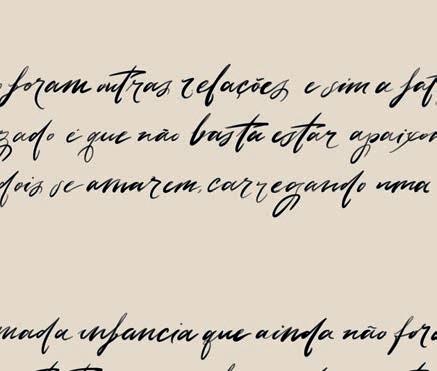 foram outras relações e sim a fat
zado é que não basta estar apaixon
dois se amarem, carregando uma
mada infancia que ainda não for